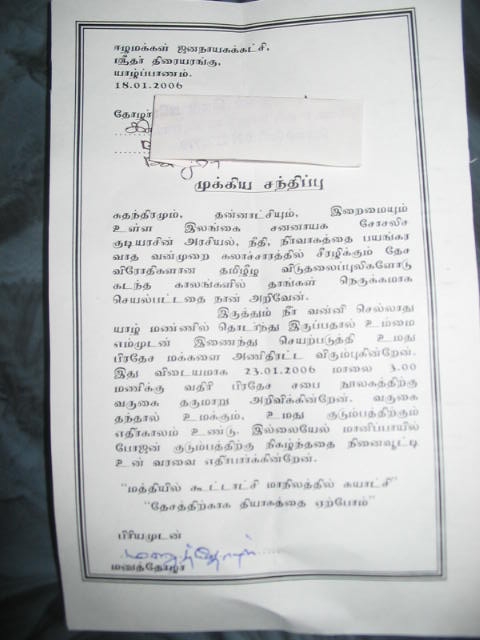 ஈழமக்கள் ஜனநாயகக்கட்சி,
ஸ்ரீதர் திரையரங்கு,
யாழ்ப்பாணம்.
18.01.2006
தோழர்
முக்கிய சந்திப்பு
சுதந்திரமும், தன்னாட்சியும், இறைமையும்
உள்ள இலங்கை சனனாயக சோசலிச
குடியரசின் அரசியல், நீதி, நிர்வாகத்தை பயங்கர
வாத வன்முறை கலாச்சாரத்தில் சீரழிக்கும் தேச
விரோதிகளான தமிழீழ விடுதலைப்புலிகளோடு
கடந்த காலங்களில் தாங்கள் நெருக்கமாக
செயல்பட்டதை நான் அறிவேன்.
இருத்தும் நீர் வன்னி செல்லாது
யாழ் மண்ணில் தொடர்ந்து இருப்பதால் உம்மை
எம்முடன் இணைந்து செயற்படுத்தி உமது
பிரதேச மக்களை அணிதிரட்ட விரும்புகின்றேன்.
இது விடையமாக 23.01.2006 மாலை 3.00
மணிக்கு வதிரி பிரதேச சபை நூலகத்திற்கு
வருகை தருமாறு அறிவிக்கின்றேன். வருகை
தந்தால் உமக்கும், உமது குடும்பத்திற்கும்
எதிர்காலம் உண்டு. இல்லையேல் மானிப்பாயில்
போஜன் குடும்பத்திற்கு நிகழ்ந்ததை நினைவூட்டி
உன் வரவை எதிர்பார்க்கின்றேன்.
"மத்தியில் கூட்டாட்சி மாநிலத்தில் சுயாட்சி"
"தேசத்திற்காக தியாகத்தை ஏற்போம்"
பிரியமுடன்
மனுத்தோழர்